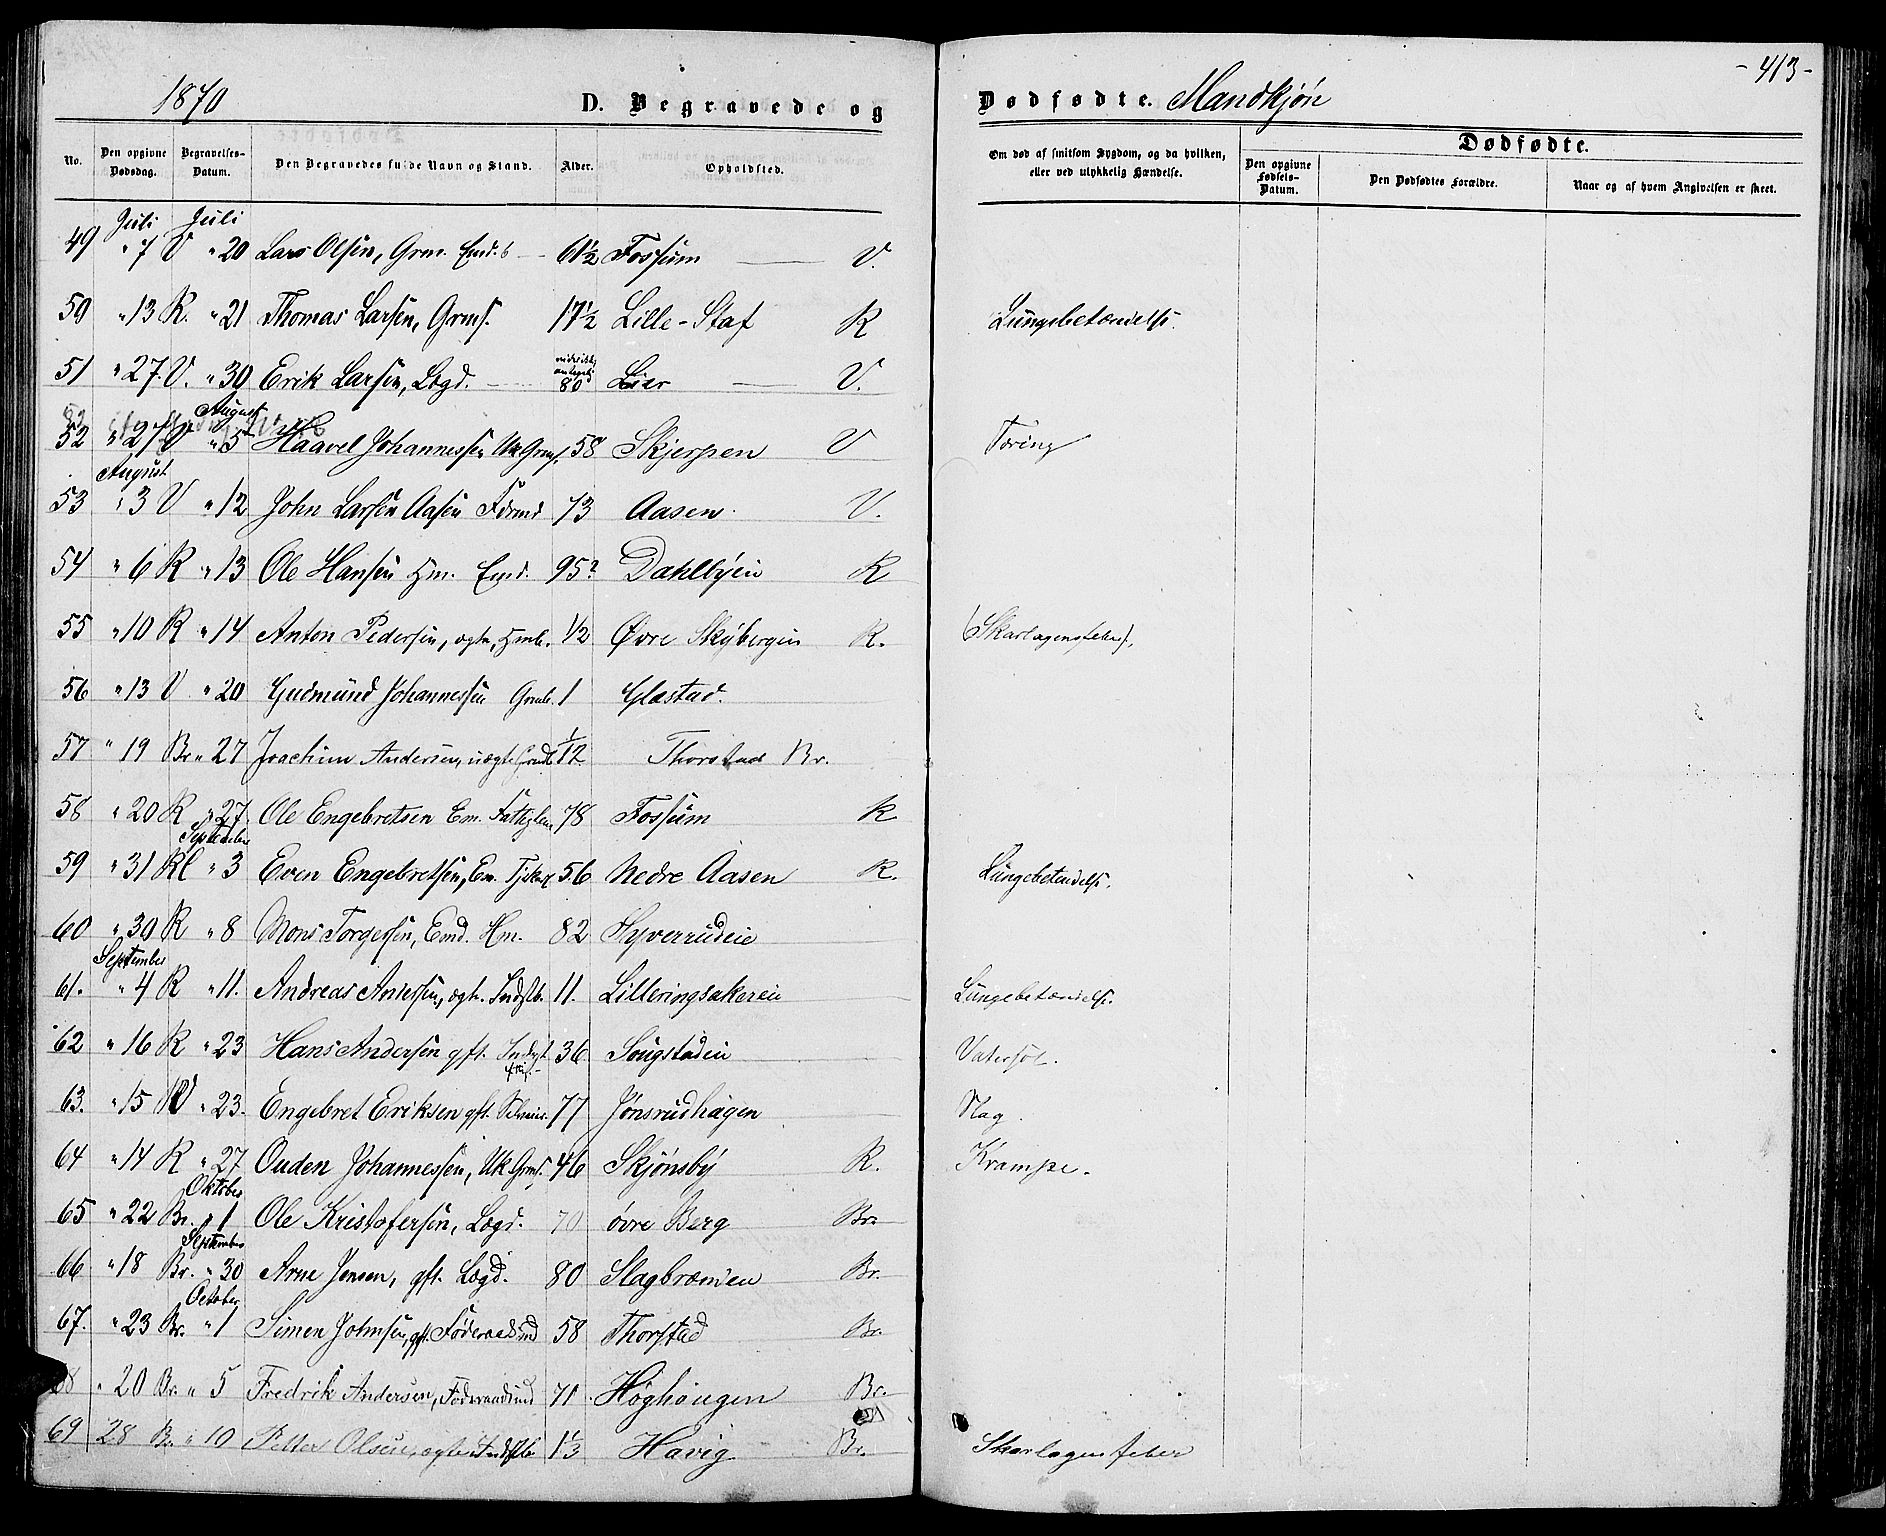 - 413 -
1870 D. Begravede og Dødfødte. Mandkjøn
No. Den opgivne Dødsdag. Begravelses-Datum. Den Begravedes fulde Navn og Stand. Alder. Opholdsted. Om død af smitsom Sygdom, og da hvilken, eller ved ulykkelig Hændelse. Dødfødte. Den opgivne Fødsels-Datum. Den Dødfødtes Forældre. Naar og af hvem Angivelsen er skeet.
Juli Juli
49 " 7 V " 20 Lars Olsen, Grm. 61½ Fossum V.
50 " 13 R. " 21 Thomas Larsen, Grms. 17½ Lille-Staf R Lungebetændelse.
51 " 27. V. " 30 Erik Larsen, Lægd. 80 Lier V.
August
52 " 27 V " 5 Haavel Johannessen Uk Grms. 58 Skjerpen V Tæring
August
53 " 3 V " 12 John Larsen Aasen 73 Aasen V.
54 " 6 R " 13 Ole Hansen Hm. Emd. 95? Dahlbyein R
55 " 10 R " 14 Anton Pedersen, ægte, Hmb. 1/2 Øvre Skybergein R. (Skarlagensfeber).
56 " 13 V " 20 Gudmund Johannessen Grmb. 1 Glæstad.
57 " 19 Br. " 27 Joachim Andersen, uægte 1/12 Thorstad Br.
58 " 20 R " 27. Ole Engebretsen Em. Fattiglem 78 Fossum R
September
59 " 31 R " 3 Even Engebretsen, Em. 56 Nedre Aasen R. Lungebetændelse.
60 " 30 R " 8 Mons Torgersen, Emd. Hm. 82 Hyverrudeie
September
61. " 4 R " 11. Andreas Andersen, ægte. Indstb. 11. Lilleringsakereie Lungebetændelse.
62 " 16 R " 23 Hans Andersen gft. Indst. 36 Sougstadeie Vatersot.
63. " 15 V " 23. Engebret Eriksen gft. 77 Jønsrudhagen Slag.
64 " 14 R " 27 Ouden Johannessen, Uk Grms. 46 Skjønsby R. Krampe.
Oktober
65 " 22 Br. " 1 Ole Kristofersen, Lægd. 70 øvre Berg Br.
September
66 " 18 Br. " 30 Arne Jensen, gft. Lægd. 80 Slagbrænden Br.
October
67. " 23 Br. " 1 Simen Johnsen, gft. Føderaadsmd 58 Thorstad Br.
68 " 20 Br. " 5 Fredrik Andersen, Føderaadsmd 71 Høghaugen Br.
69 28 Br. " 10 Petter Olsen, ægte Indstb 1⅓ Havig Br. Skarlagensfeber